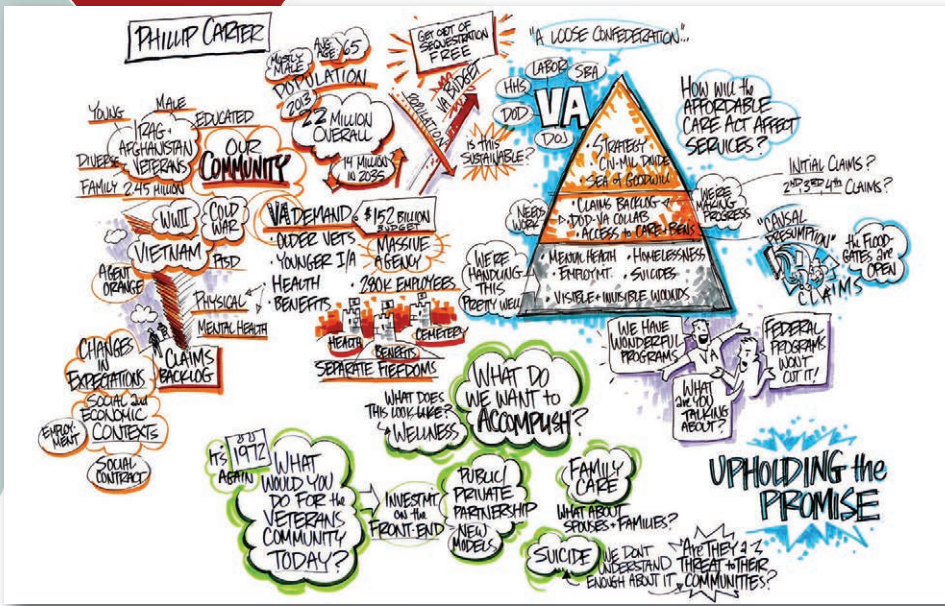 PHILLIP CARTER
MOSTLY
MALE
AVE.
AGE: 65
POPULATION
2013
22 MILLION
OVERALL
14 MILLION
IN 2035
GET OUT OF
SEQUESTRATION
FREE
POPULATION
VA BUDGET
IS THIS
SUSTAINABLE?
YOUNG
MALE
EDUCATED
IRAQ +
AFGHANISTAN
VETERANS
DIVERSE
FAMILY
2.45 MILLION
OUR
COMMUNITY
WWII
COLD
WAR
VIETNAM
PTSD
AGENT
ORANGE
PHYSICAL
MENTAL HEALTH
CLAIMS
BACKLOG
CHANGES
IN
EXPECTATIONS
SOCIAL and
ECONOMIC
CONTEXTS
EMPLOY-
MENT
SOCIAL
CONTRACT
VA DEMAND
• OLDER VETS
• YOUNGER I/A
• HEALTH
• BENEFITS
$152 BILLION
BUDGET
MASSIVE
AGENCY
280K EMPLOYEES
HEALTH
BENEFITS
CEMETERY
SEPARATE FIEFDOMS
"A LOOSE CONFEDERATION"...
LABOR
SBA
HHS
DOD
VA
DOJ
• STRATEGY
• CIV-MIL DIVIDE
• SEA of GOODWILL
• CLAIMS BACKLOG
• DOD-VA COLLAB
• ACCESS to CARE + BENS
• MENTAL HEALTH
• HOMELESSNESS
• EMPLOYMT.
• SUICIDES
• VISIBLE + INVISIBLE WOUNDS
NEEDS
WORK
WE'RE
MAKING
PROGRESS
WE'RE
HANDLING
THIS
PRETTY WELL
HOW WILL the
AFFORDABLE
CARE ACT AFFECT
SERVICES?
INITIAL CLAIMS?
2ND, 3RD, 4th CLAIMS?
"CAUSAL
PRESUMPTION"
the FLOOD-
GATES are
OPEN
CLAIMS
WE HAVE
WONDERFUL
PROGRAMS
VA
FEDERAL
PROGRAMS
WON'T
CUT IT!
WHAT
are YOU
TALKING
ABOUT?
WHAT DO
WE WANT to
ACCOMPLISH?
WHAT DOES
THIS LOOK LIKE?
WELLNESS
IT'S
1972
AGAIN
WHAT
WOULD YOU
DO FOR the
VETERANS
COMMUNITY
TODAY?
INVESTMT.
on the
FRONT-END
PUBLIC/
PRIVATE
PARTNERSHIP
NEW
MODELS
FAMILY
CARE
WHAT ABOUT
SPOUSES + FAMILIES?
SUICIDE
WE DON'T
UNDERSTAND
ENOUGH ABOUT IT
"ARE THEY a
THREAT to THEIR
COMMUNITIES?
UPHOLDING the
PROMISE